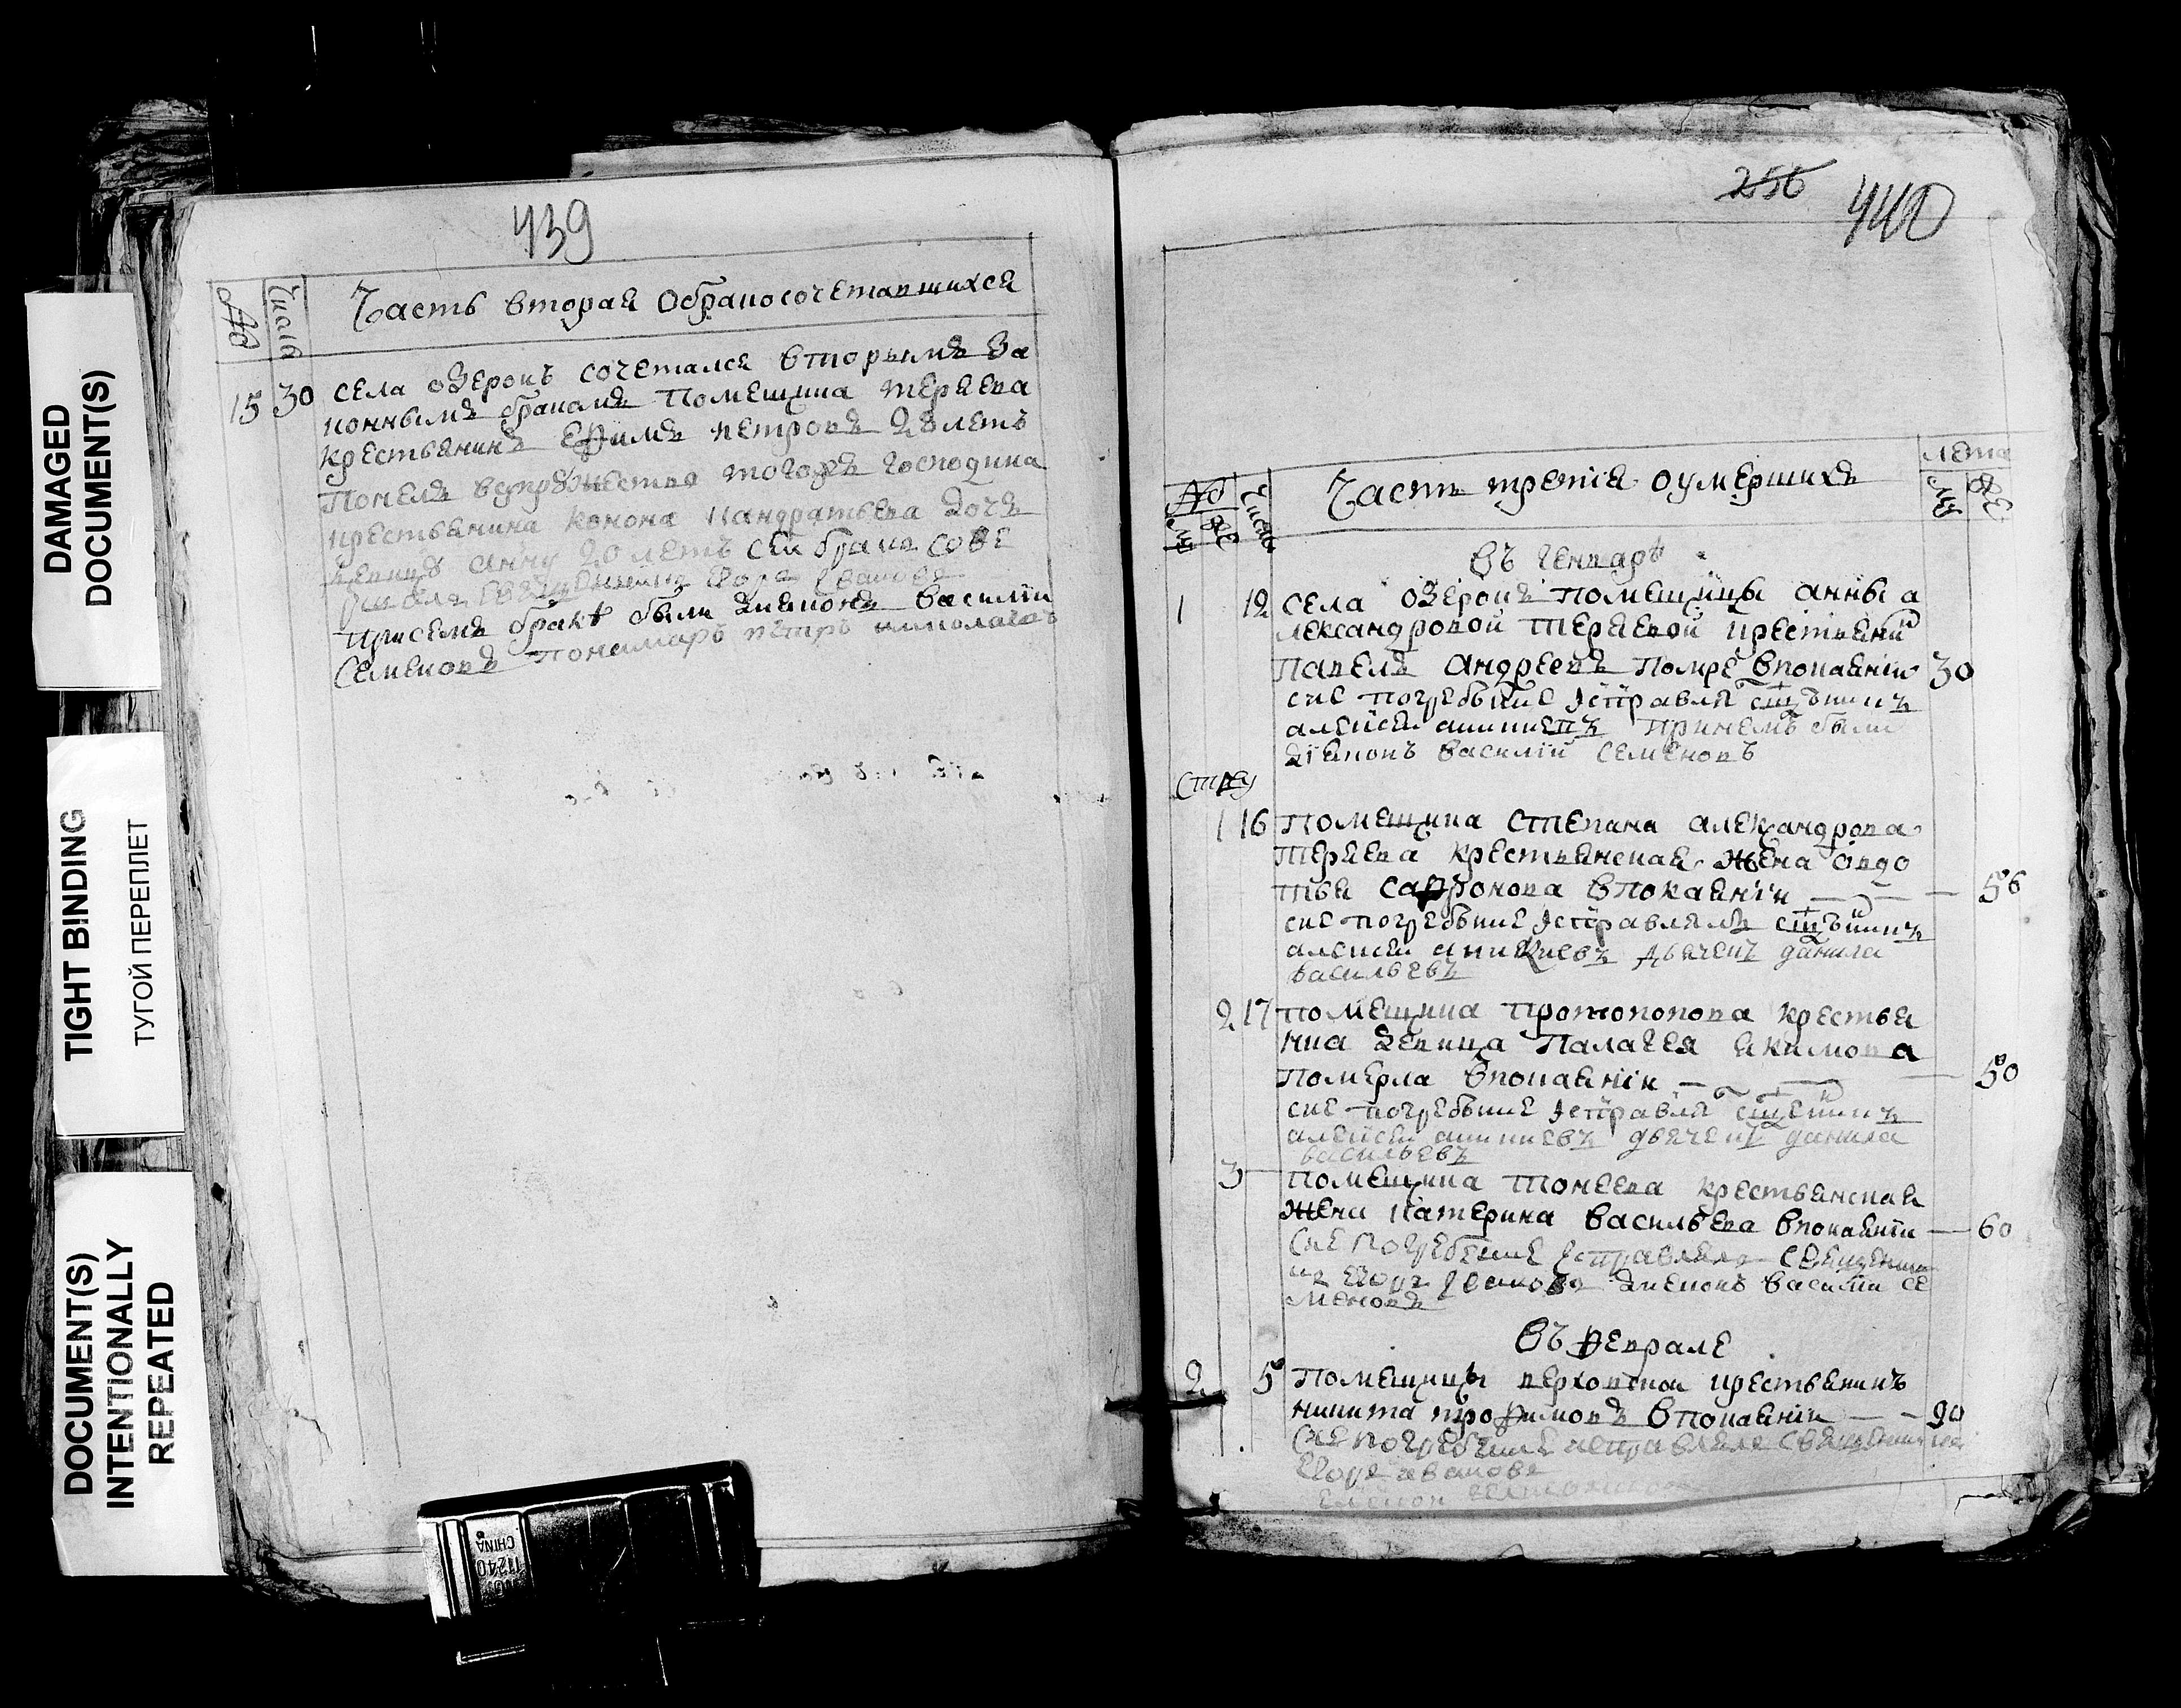 DAMAGED
DOCUMENT(S)
TIGHT BINDING
ТУГОЙ ПЕРЕПЛЕТ
DOCUMENT(S)
INTENTIONALLY
REPEATED
439
№
Числа
Часть вторая обракосочетавшихся
15 30 села озерокъ сочетался вторымъ за
коннымъ бракомъ помещика теряева
крестьянинъ Ефимъ петровъ 28 летъ
понелъ всупружество тогожъ господина
крестьянина конона кандратьева дочь
девицу анну 20 летъ сей бракъ сове
Егоръ Ивановъ
присемъ бракѣ были дияконъ василий
Семеновъ пономарь петръ николаевъ
256 440
№
Числа
Часть третія оумершихъ
лета
му же
му же
Въ генварѣ
1 12 села озерокъ помещицы анны а
лександровой теряевой крестьяни
павелъ андреевъ помре впокаяніи 30
сие погребѣние ісправлѣ сщѣникъ
алеѯеи аникиевъ принемъ были
діяконъ василій семеновъ
1 16 помещика степана алеѯандрова
теряева крестьянская жена овдо
тья сафронова впокаяніи — 56
сие погребѣние ісправлялъ сщѣникъ
алеѯеи аникиевъ дьячекъ данила
васильевъ
2 17 помещика протопопова крестья
нка девица палагея якимова
померла впокаяніи — 50
сие погребѣние ісправлѣ сщеникъ
алеѯеи аникиевъ дьячекъ данила
васильевъ
3 помещика тонеева крестьянская
жена катерина васильева впокаяніи — 60
Сие погребѣние ісправлялъ священни
къ Егоръ Ивановъ диаконъ василій се
меновъ
Въ феврале
2 5 помещицы верховской крестьянинъ
никита трофимовъ впокаяніи — 90
Сие погребѣние исправлялъ священникъ
Егоръ ивановъ